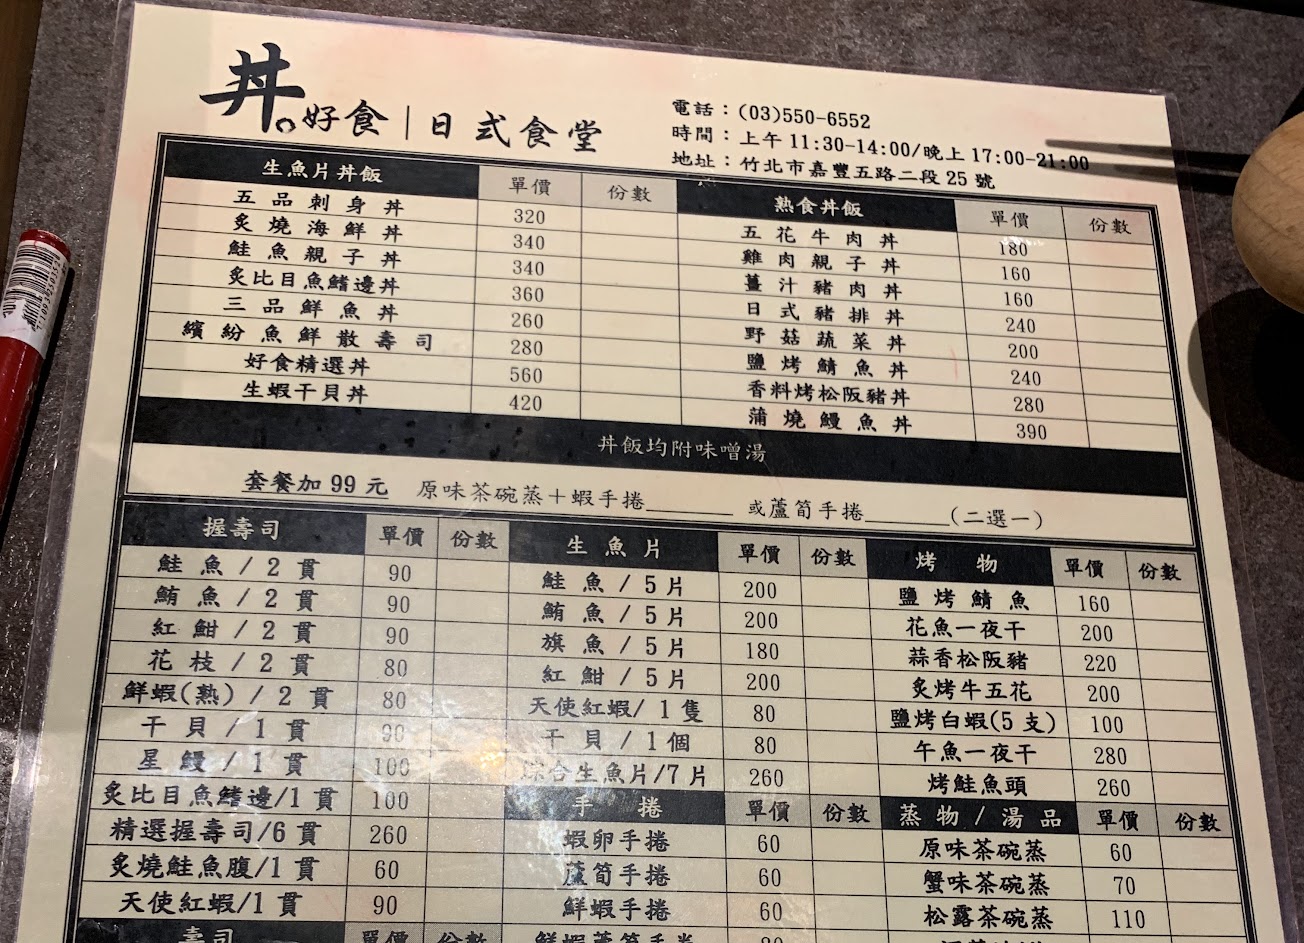 丼。好食|日式食堂
電話：(03)550-6552
時間：上午 11:30-14:00/晚上 17:00-21:00
地址：竹北市嘉豐五路二段 25 號
生魚片丼飯 單價 份數
五品刺身丼 320
炙燒海鮮丼 340
鮭魚親子丼 340
炙比目魚鰭邊丼 360
三品鮮魚丼 260
繽紛魚鮮散壽司 280
好食精選丼 560
生蝦干貝丼 420
熟食丼飯 單價 份數
五花牛肉丼 180
雞肉親子丼 160
薑汁豬肉丼 160
日式豬排丼 240
野菇蔬菜丼 200
鹽烤鯖魚丼 240
香料烤松阪豬丼 280
蒲燒鰻魚丼 390
丼飯均附味噌湯
套餐加 99 元 原味茶碗蒸＋蝦手捲______ 或蘆筍手捲______(二選一)
握壽司 單價 份數
鮭魚/2貫 90
鮪魚/2貫 90
紅魽/2貫 90
花枝/2貫 80
鮮蝦(熟)/2貫 80
干貝/1貫 90
星鰻/1貫 100
炙比目魚鰭邊/1貫 100
精選握壽司/6貫 260
炙燒鮭魚腹/1貫 60
天使紅蝦/1貫 90
壽司 單價 份數
生魚片 單價 份數
鮭魚/5片 200
鮪魚/5片 200
旗魚/5片 180
紅魽/5片 200
天使紅蝦/1隻 80
干貝/1個 80
綜合生魚片/7片 260
手捲 單價 份數
蝦卵手捲 60
蘆筍手捲 60
鮮蝦手捲 60
烤物 單價 份數
鹽烤鯖魚 160
花魚一夜干 200
蒜香松阪豬 220
炙烤牛五花 200
鹽烤白蝦(5支) 100
午魚一夜干 280
烤鮭魚頭 260
蒸物/湯品 單價 份數
原味茶碗蒸 60
蟹味茶碗蒸 70
松露茶碗蒸 110